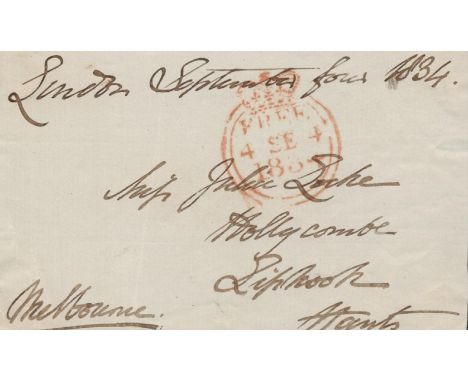 London September four 1834.
FREE
4 SE 4
1834
Miss Julia Luke
Hollycombe
Liphook
Melbourne.
Hants